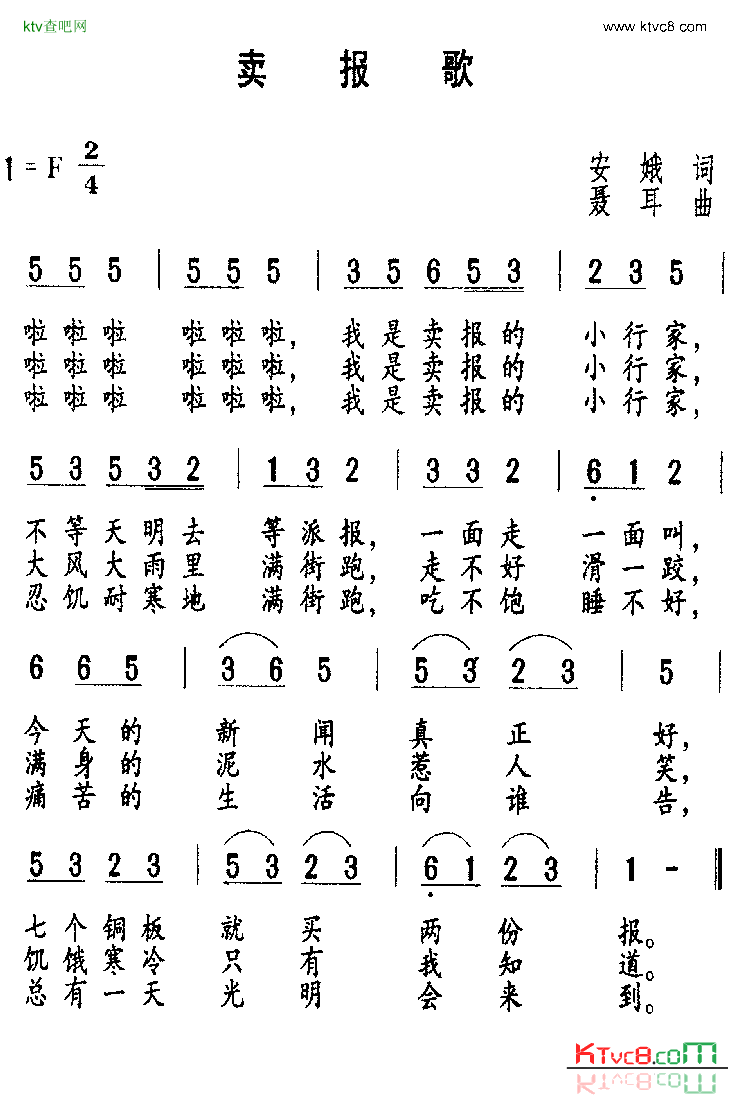 ktv查吧网
www.ktvc8 com
卖 报 歌
1 = F 2/4
安 娥 词
聂 耳 曲
5 5 5 | 5 5 5 | 3 5 6 5 3 | 2 3 5 |
啦啦啦 啦啦啦, 我是卖报的 小行家,
啦啦啦 啦啦啦, 我是卖报的 小行家,
啦啦啦 啦啦啦, 我是卖报的 小行家,
5 3 5 3 2 | 1 3 2 | 3 3 2 | 6 1 2 |
不等天明去 等派报, 一面走 一面叫,
大风大雨里 满街跑, 走不好 滑一跤,
忍饥耐寒地 满街跑, 吃不饱 睡不好,
6 6 5 | 3 6 5 | 5 3 2 3 | 5 |
今天的 新闻真正好,
满身的 泥水惹人笑,
痛苦的 生活向谁告,
5 3 2 3 | 5 3 2 3 | 6 1 2 3 | 1 - ‖
七个铜板 就买 两份 报。
饥饿寒冷 只有 我知 道。
总有一天 光明 会来 到。
KTvc8.com